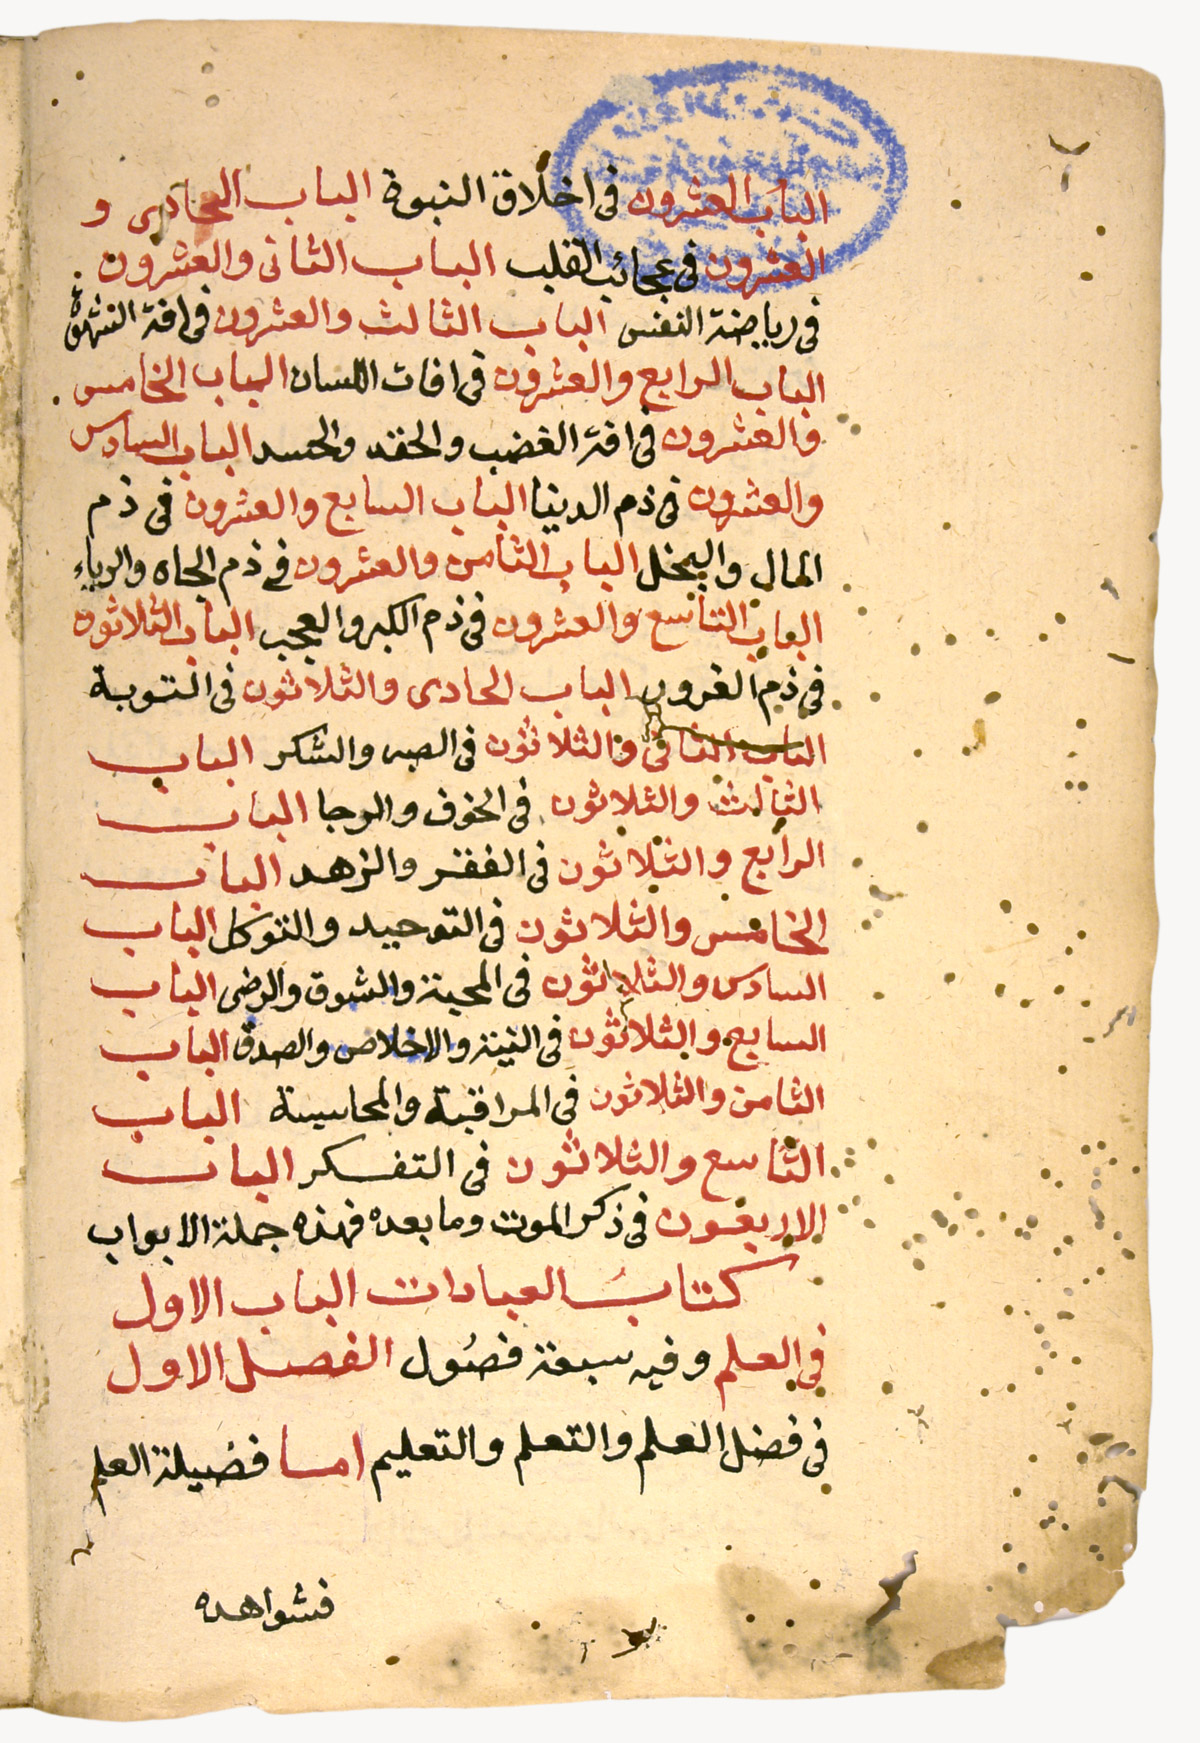 الباب العشرون فى اخلاق النبوة الباب الحادى و
العشرون فى عجائب القلب الباب الثانى والعشرون
فى رياضة النفس الباب الثالث والعشرون فى افة الشهوة
الباب الرابع والعشرون فى افات اللسان الباب الخامس
والعشرون فى افة الغضب والحقد والحسد الباب السادس
والعشرون فى ذم الدينا الباب السابع والعشرون فى ذم
المال والبخل الباب الثامن والعشرون فى ذم الجاه والرياء
الباب التاسع والعشرون فى ذم الكبر والعجب الباب الثلاثون
فى ذم الغرور الباب الحادى والثلاثون فى التوبة
الباب الثانى والثلاثون فى الصبر والشكر الباب
الثالث والثلاثون فى الخوف والرجا الباب
الرابع والثلاثون فى الفقر والزهد الباب
الخامس والثلاثون فى التوحيد والتوكل الباب
السادس والثلاثون فى المحبة والشوق والرضى الباب
السابع والثلاثون فى النية والاخلاص والصدق الباب
الثامن والثلاثون فى المراقبة والمحاسبة الباب
التاسع والثلاثون فى التفكر الباب
الاربعون فى ذكر الموت وما بعده فهذه جملة الابواب
كتابُ العبادات الباب الاول
فى العلم وفيه سبعة فصُول الفصل الاول
فى فضل العلم والتعلم والتعليم اما فضيلة العلم
فشواهده